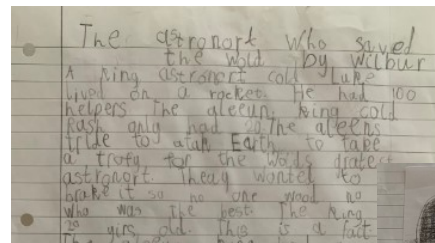 The astronort who saved
the wold by Wilbur
A king astronort cold Luke
lived on a rocket. He had 100
helpers The aleeun king cold
Rash only had 20. The aleens
tride to atak Earth to take
a trofy for the wolds
astronort. theay wontel to
brake it so no one wood no
who was the best. The king
20 yirs old. This is a fact.